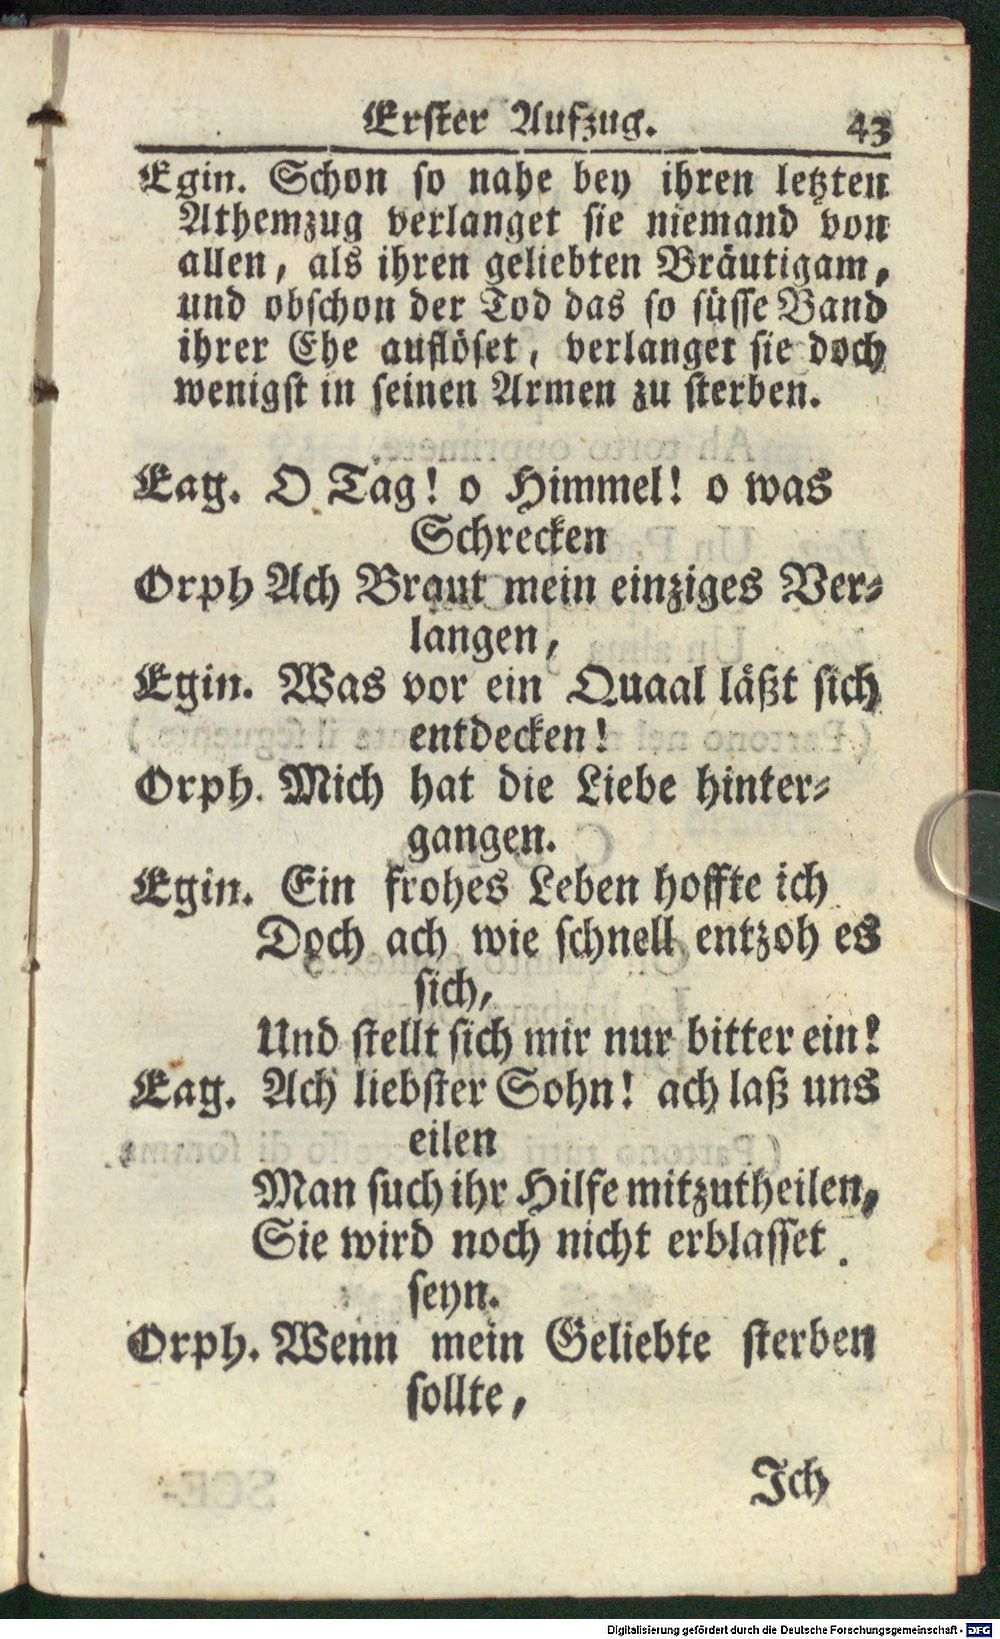 Erster Aufzug. 43
Egin. Schon so nahe bey ihren letzten
Athemzug verlanget sie niemand von
allen, als ihren geliebten Bräutigam,
und obschon der Tod das so süsse Band
ihrer Ehe auflöset, verlanget sie doch
wenigst in seinen Armen zu sterben.
Eag. O Tag! o Himmel! o was
Schrecken
Orph Ach Braut mein einziges Ver-
langen,
Egin. Was vor ein Quaal läßt sich
entdecken!
Orph. Mich hat die Liebe hinter-
gangen.
Egin. Ein frohes Leben hoffte ich
Doch ach wie schnell entzoh es
sich,
Und stellt sich mir nur bitter ein!
Eag. Ach liebster Sohn! ach laß uns
eilen
Man such ihr Hilfe mitzutheilen,
Sie wird noch nicht erblasset
seyn.
Orph. Wenn mein Geliebte sterben
sollte,
Ich
Digitalisierung gefördert durch die Deutsche Forschungsgemeinschaft - DFG